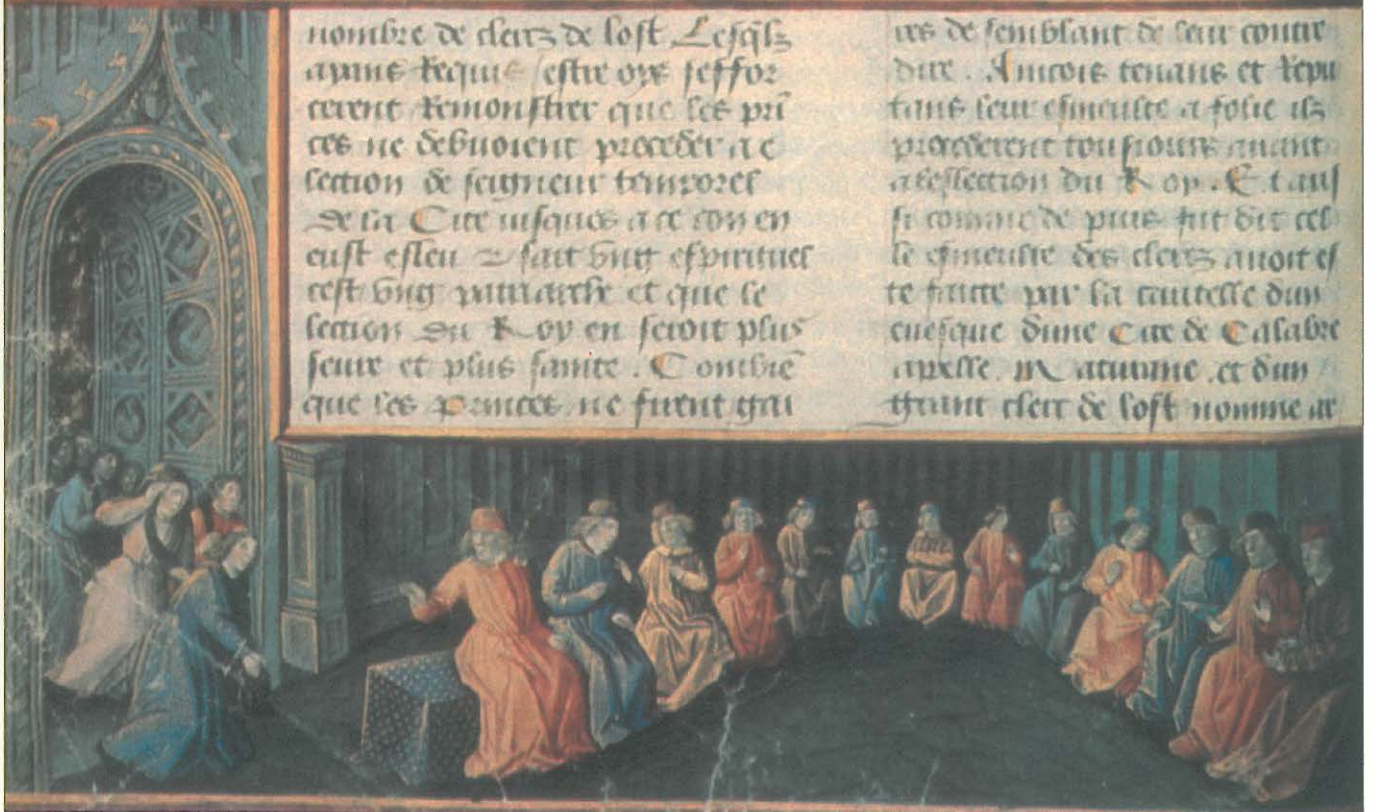 nombre de clercz de lost Lesq̃lz
ayans Requis estre oys seffor
cerent Remonstrer que les pri͂
ces ne debuoient proceder a e
lection de seigneur temporel
de la Cite iusques a ce con en
eust esleu & fait vng espirituel
cest vng patriarche et que le
lection du Roy en seroit plus
seure et plus sainte . Combie͂
que les Princes ne firent gai
res de semblant de leur contre
dire . Aincois tenans et Repu
tans leur esmeulte a folie ilz
procederent tousiours auant
a leslection du Roy . Et aus
si comme de puis fut dit cel
le esmeulte des clercz auoit es
te faitte par la cautelle dun
euesque dune Cite de Calabre
apelle et dun
grant clerc de lost nomme ar